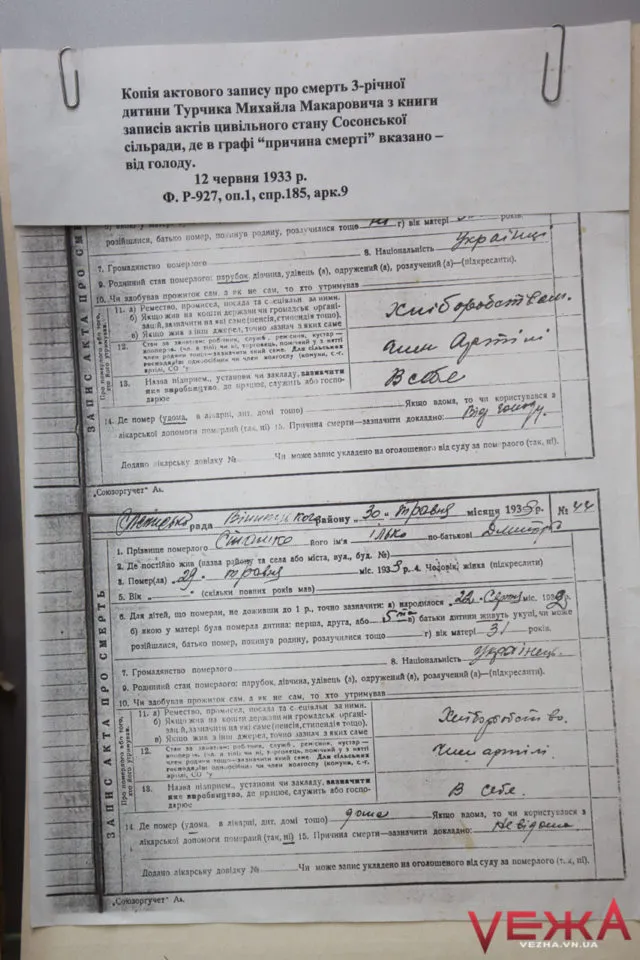 Копія актового запису про смерть 3-річної
дитини Турчика Михайла Макаровича з книги
записів актів цивільного стану Сосонської
сільради, де в графі “причина смерті” вказано –
від голоду.
12 червня 1933 р.
Ф. Р-927, оп.1, спр.185, арк.9
розійшлися, батько помер, покинув родину, розлучилися тощо г) вік матері років.
7. Громадянство померлого 8. Національність Українці
9. Родинний стан померлого: парубок, дівчина, удівець (а), одружений (а), розлучений (а)—(підкреслити).
10. Чи здобував прожиток сам, а як не сам, то хто утримував
11. а) Ремество, промисел, посада та спеціяльн за ними.
б) Якщо жив на кошти держави чи громадськ органі-
зації, зазначити на які саме (пенсія, стипендія тощо).
в) Якщо жив з інш джерел, точно зазнач з яких саме
Хліборобством.
12. Член Артілі
13. Назва підприєм., установи чи закладу, вказати
яке виробництво, де працює, служить або госпо-
дарює
В себе
14. Де помер (удома, в лікарні, дит. домі тощо) —Якщо вдома, то чи користувався з
лікарської допомоги померлий (так, ні) 15. Причина смерти—зазначити докладно: Від голоду.
Додано лікарську довідку № Чи може запис укладено на оголошеного від суду за померлого (так, ні).
„Союзоргучет“ Ак.
ЗАПИС АКТА ПРО СМЕРТЬ
Про померлого або того, хто його утримував:
рада Вінницького району „30“ травня місяця 1933 р. № 44
1. Прізвище померлого його ім'я Ілько по-батькові Дмитро
2. Де постійно жив (назва району та села або міста, вул., буд. №)
3. Помер(ла) 29 травня міс. 1933 р. 4. Чоловік, жінка (підкреслити)
5. Вік (скільки повних років мав)
6. Для дітей, що померли, не доживши до 1 р., точно зазначити: а) народилося „22“ Серпня міс. 193 р.
б) якою у матері була померла дитина: перша, друга, або 5та в) батьки дитини живуть укупі, чи може
розійшлися, батько помер, покинув родину, розлучилися тощо г) вік матері 31 років.
7. Громадянство померлого 8. Національність Українець.
9. Родинний стан померлого: парубок, дівчина, удівець (а), одружений (а), розлучений (а)—(підкреслити).
10. Чи здобував прожиток сам, а як не сам, то хто утримував
11. а) Ремество, промисел, посада та спеціяльн за ними.
б) Якщо жив на кошти держави чи громадськ органі-
зації, зазначити на які саме (пенсія, стипендія тощо).
в) Якщо жив з інш джерел, точно зазнач з яких саме
Хліборобство.
12. Член артілі.
13. Назва підприєм., установи чи закладу, вказати
яке виробництво, де працює, служить або госпо-
дарює
В себе.
14 Де помер (удома, в лікарні, дит. домі тощо) дома —Якщо вдома, то чи користувався з
лікарської допомоги померлий (так, ні) 15. Причина смерти—зазначити докладно: Невідома
Додано лікарську довідку № Чи може запис укладено на оголошеного від суду за померлого (так, ні).
„Союзоргучет“ Ак.
ЗАПИС АКТА ПРО СМЕРТЬ
Про померлого або того, хто його утримував:
VЕЖА
VEZHA.VN.UA